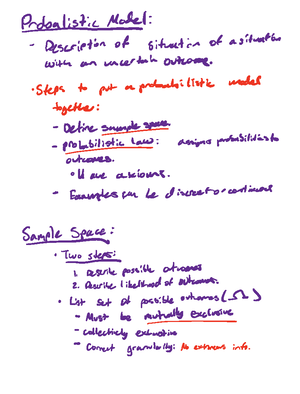 Probabilistic Model:
- Description of situation of a situation
with an uncertain outcome.
• Steps to put a probabilistic model
together:
- Define sample space.
- probabilistic law: assigns probabilities to
outcomes.
• axioms.
- Examples can be discrete or continuous
Sample Space:
• Two steps:
1. Describe possible outcomes
2. Describe likelihood of outcomes.
• List set of possible outcomes (Ω)
- Must be mutually exclusive
- collectively exhaustive
- Correct granularity: No extraneous info.